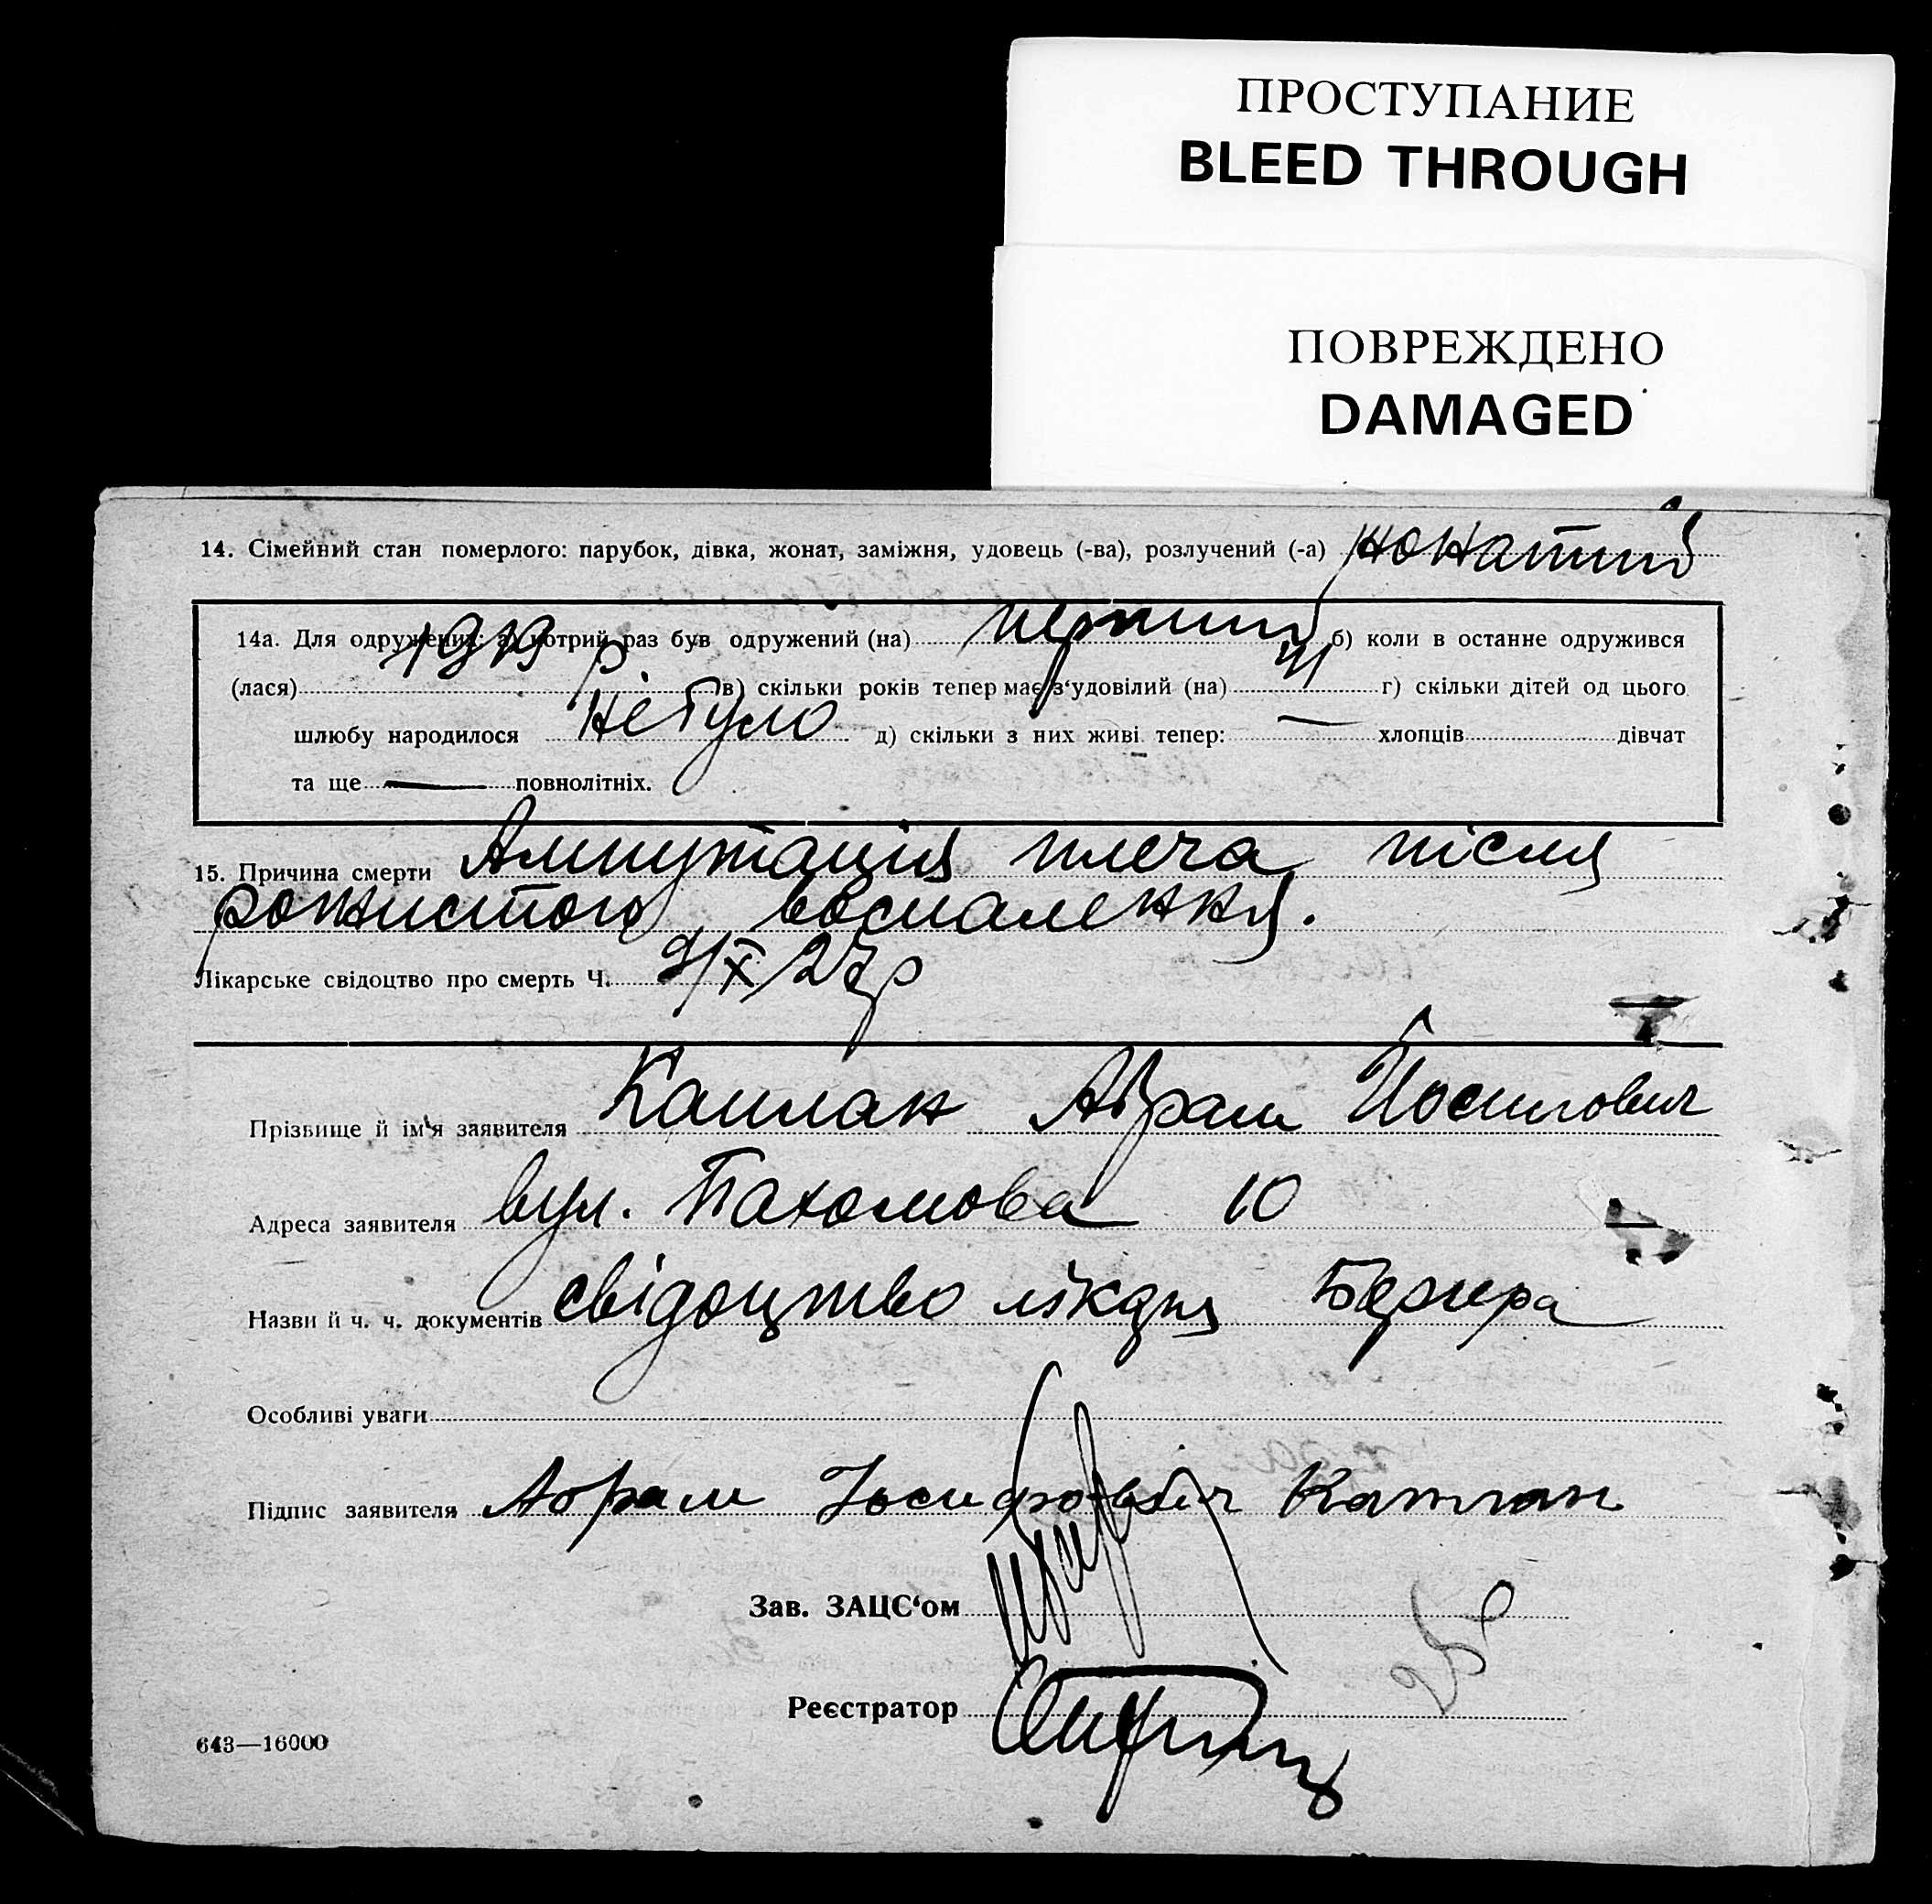 ПРОСТУПАНИЕ
BLEED THROUGH
ПОВРЕЖДЕНО
DAMAGED
14. Сімейний стан померлого: парубок, дівка, жонат, заміжня, удовець (-ва), розлучений (-а) жонатий
14а. Для одружених: а) котрий раз був одружений (на) перший б) коли в останне одружився
(лася) 1919 р в) скільки років тепер має з‘удовілий (на) 41 г) скільки дітей од цього
шлюбу народилося не було д) скільки з них живі тепер: — хлопців дівчат
та ще — повнолітніх.
15. Причина смерти Ампутація плеча після
рожистого воспалення.
Лікарське свідоцтво про смерть Ч. 9/X/27р
Прізвище й ім‘я заявителя Каплан Абрам Йосипович
Адреса заявителя вул. Пахомова 10
Назви й ч. ч. документів свідоцтво лікаря
Особливі уваги
Підпис заявителя Абрам Иосифович Каплан
Зав. ЗАЦС‘ом
Реєстратор
643—16000